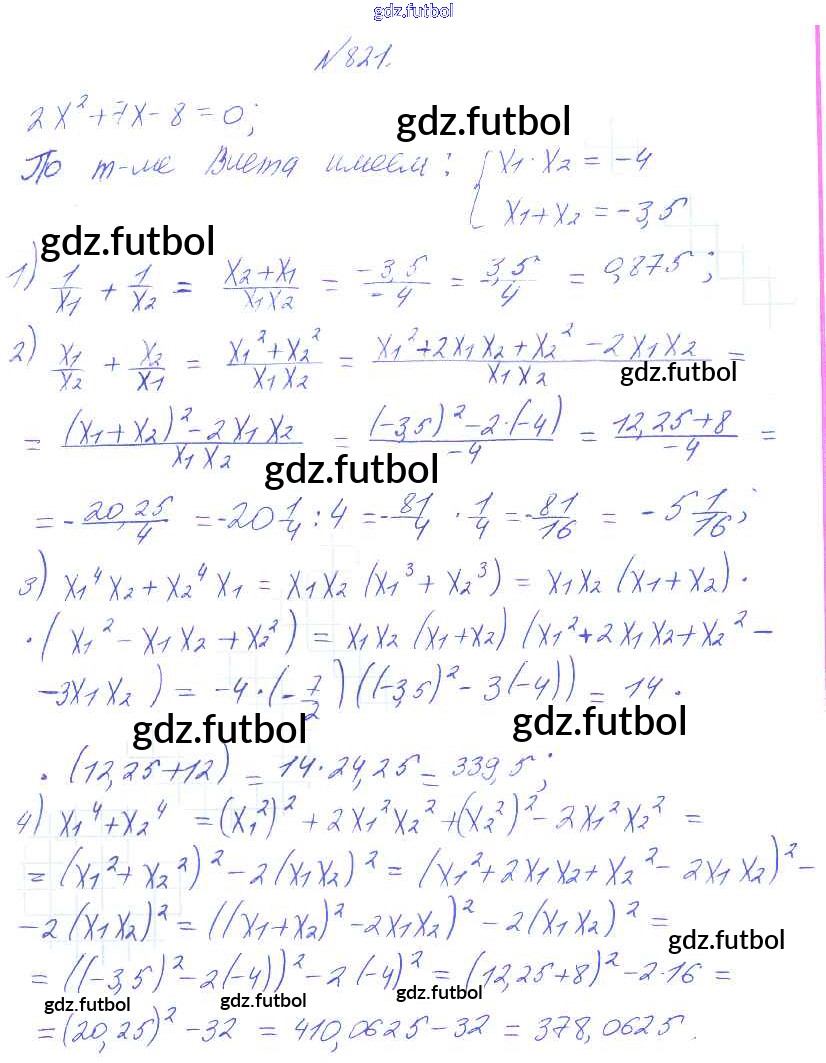 gdz.futbol
№821.
2x²+7x-8=0;
gdz.futbol
По т-ме Виета имеем: { x₁·x₂ = -4
x₁+x₂ = -3,5
gdz.futbol
1) 1/x₁ + 1/x₂ = (x₂+x₁)/(x₁x₂) = (-3,5)/(-4) = 3,5/4 = 0,875;
2) x₁/x₂ + x₂/x₁ = (x₁²+x₂²)/(x₁x₂) = (x₁²+2x₁x₂+x₂²-2x₁x₂)/(x₁x₂) =
gdz.futbol
= ((x₁+x₂)²-2x₁x₂)/(x₁x₂) = ((-3,5)²-2·(-4))/(-4) = (12,25+8)/(-4) =
gdz.futbol
= -20,25/4 = -20 1/4 : 4 = -81/4 · 1/4 = -81/16 = -5 1/16;
3) x₁⁴x₂+x₂⁴x₁ = x₁x₂(x₁³+x₂³) = x₁x₂(x₁+x₂)·
·(x₁²-x₁x₂+x₂²) = x₁x₂(x₁+x₂)(x₁²+2x₁x₂+x₂²-
-3x₁x₂) = -4·(-7/2)((-3,5)²-3(-4)) = 14·
gdz.futbol gdz.futbol
·(12,25+12) = 14·24,25 = 339,5;
4) x₁⁴+x₂⁴ = (x₁²)²+2x₁²x₂²+(x₂²)²-2x₁²x₂² =
= (x₁²+x₂²)²-2(x₁x₂)² = (x₁²+2x₁x₂+x₂²-2x₁x₂)²-
-2(x₁x₂)² = ((x₁+x₂)²-2x₁x₂)²-2(x₁x₂)² =
gdz.futbol
= ((-3,5)²-2(-4))²-2(-4)² = (12,25+8)²-2·16 =
gdz.futbol gdz.futbol gdz.futbol
= (20,25)²-32 = 410,0625-32 = 378,0625.